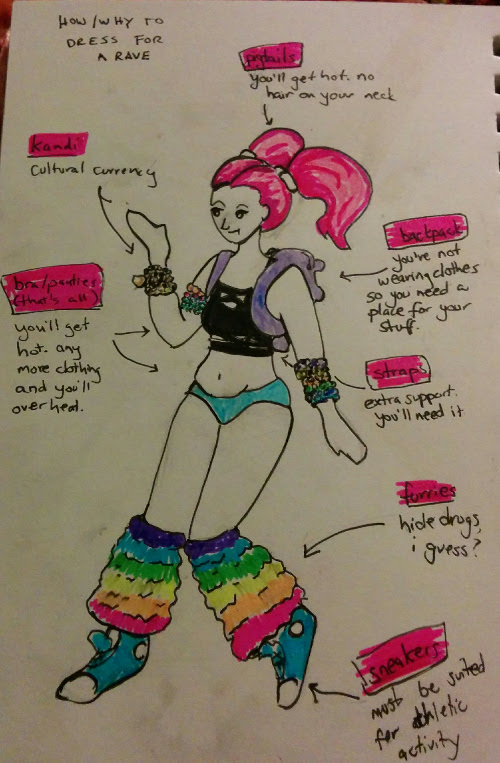 HOW/WHY TO
DRESS FOR
A RAVE
pigtails
you'll get hot. no
hair on your neck
kandi
cultural currency
backpack
you're not
wearing clothes
so you need a
place for your
stuff.
bra/panties
(that's all)
you'll get
hot. any
more clothing
and you'll
overheat.
straps
extra support.
you'll need it
furries
hide drugs,
i guess?
sneakers
must be suited
for athletic
activity